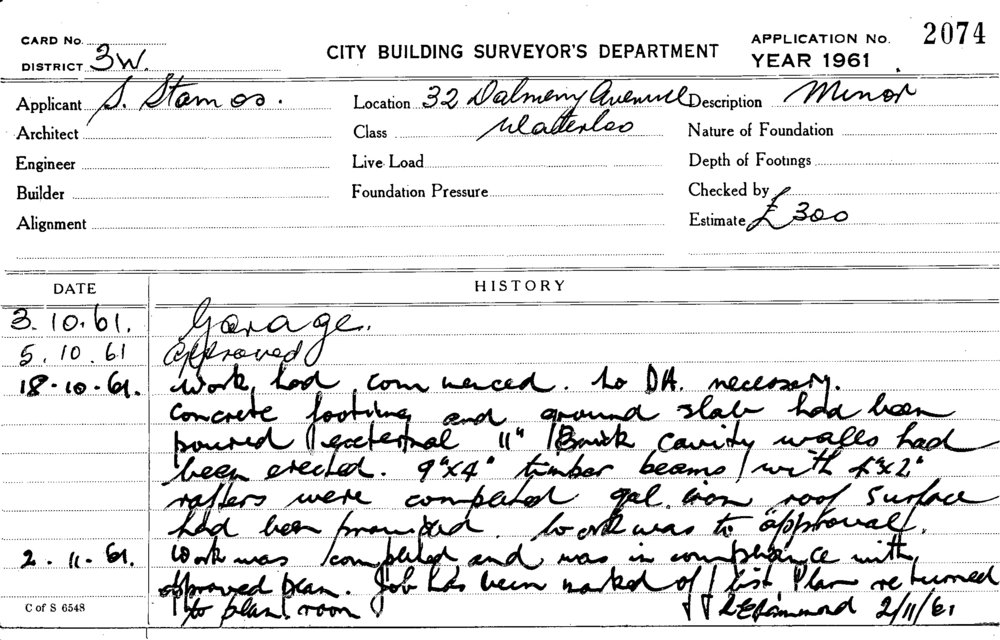 CARD No.
DISTRICT 3W.
CITY BUILDING SURVEYOR'S DEPARTMENT
APPLICATION No. 2074
YEAR 1961
Applicant S. Stamos.
Location 32 Dalmeny Avenue
Description Minor
Architect
Class Waterloo
Nature of Foundation
Engineer
Live Load
Depth of Footings
Builder
Foundation Pressure
Checked by
Alignment
Estimate £300
DATE HISTORY
3.10.61. Garage.
5.10.61 Approved
18.10.61. Work had commenced. No DA. necessary.
Concrete footing and ground slab had been
poured external 11" Brick cavity walls had
been erected. 9"x4" timber beams with 4"x2"
rafters were completed gal. iron roof surface
had been provided. Work was to approval.
2.11.61. Work was completed and was in compliance with
approved plan. Job has been marked of list Plan returned
to plan room 2/11/61
C of S 6548